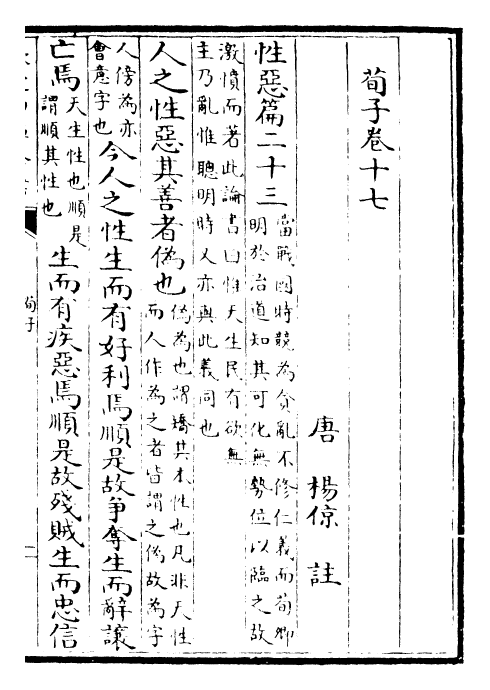 荀子卷十七
唐 楊倞 註
性惡篇二十三
當戰國時競為貪亂不修仁義而荀卿
明於治道知其可化無勢位以臨之故
激憤而著此論書曰惟天生民有欲無
主乃亂惟聰明時乂亦與此義同也
人之性惡其善者偽也
偽為也謂矯其本性也凡非天性
而人作為之者皆謂之偽故為字
人傍為亦
會意字也
今人之性生而有好利焉順是故爭奪生而辭讓
亡焉
天生性也順是
謂順其性也
生而有疾惡焉順是故殘賊生而忠信
荀子